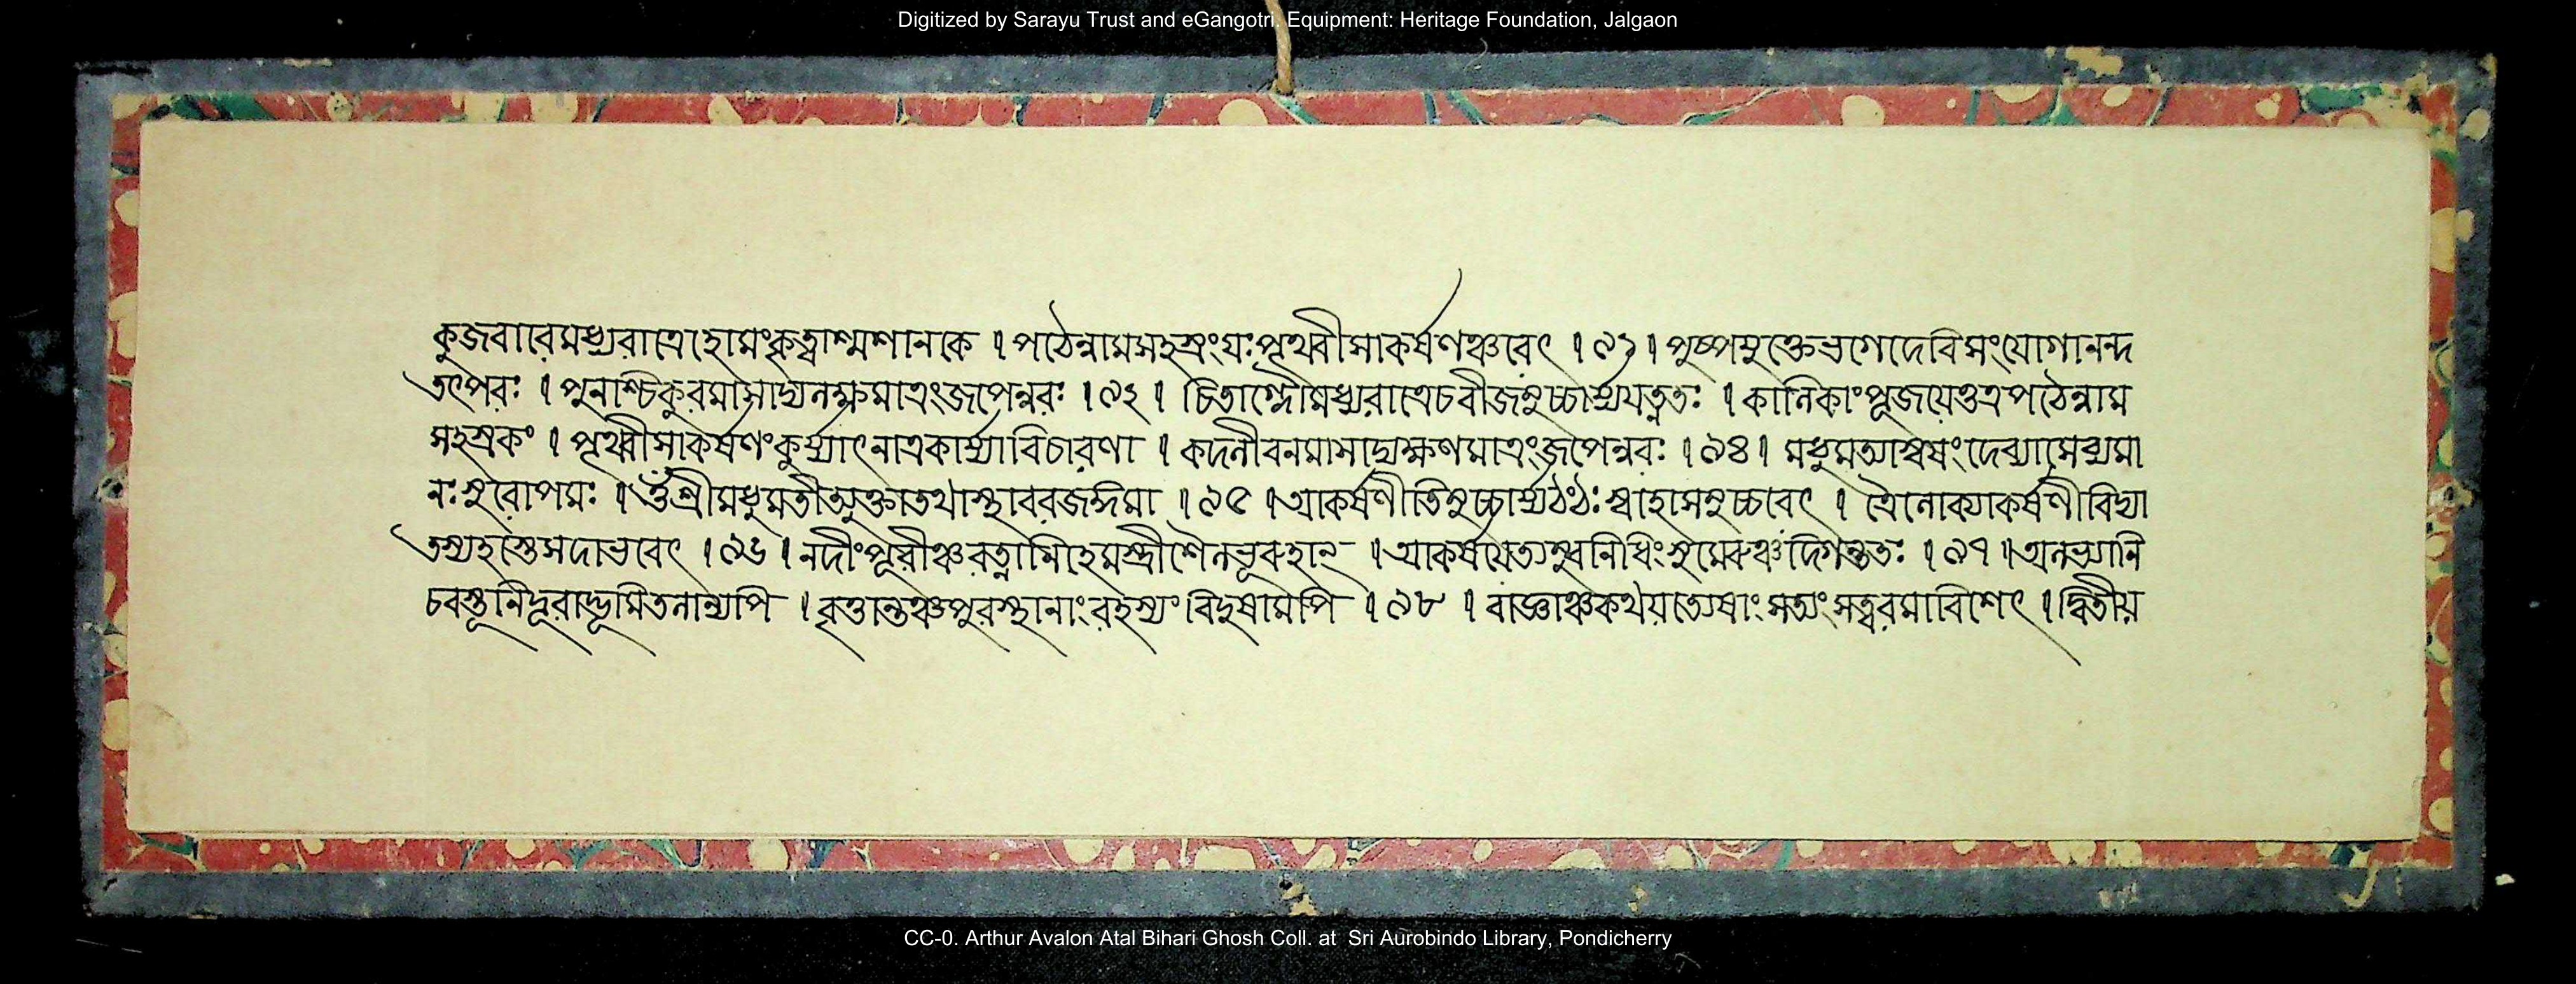 Digitized by Sarayu Trust and eGangotri. Equipment: Heritage Foundation, Jalgaon
কুজবারেমধ্যরাত্রেহোমংকৃত্বাশ্মশানকে । পঠেন্নামসহস্রংযঃপৃথ্বীমাকর্ষণঞ্চরেৎ । ৯১ । পুষ্পযুক্তেভগেদেবিসংযোগানন্দ
তৎপরঃ । পুনশ্চিকুরমাসাদ্যলক্ষমাত্রংজপেন্নরঃ । ৯২ । চিতাগ্নৌমধ্যরাত্রেচবীজমুচ্চার্য্যযত্নতঃ । কালিকাংপূজয়েত্তত্রপঠেন্নাম
সহস্রকং । পৃথ্বীমাকর্ষণংকুর্য্যাৎনাত্রকার্য্যাবিচারণা । কদলীবনমাসাদ্যক্ষণমাত্রংজপেন্নরঃ । ৯৪ । দেব্যাসেব্যমা
নঃস্মরোপমঃ । শ্রীমধুমতীত্যুক্তাতথাস্থাবরজঙ্গমা । ৯৫ । আকর্ষণীতিমুচ্চার্য্যঠংঠঃস্বাহাসমুচ্চরেৎ । ত্রৈলোক্যাকর্ষণীবিদ্যা
তস্যহস্তেসদাভবেৎ । ৯৬ । নদীংপূরীঞ্চরত্নানিহেমস্ত্রীশৈলভূরুহান্ । আকর্ষয়েত্যম্বুনিধিংসুমেরুঞ্চদিগন্ততঃ । ৯৭ । অলভ্যানি
চবস্তূনিদূরাদ্ভূমিতলান্যপি । বৃত্তান্তঞ্চপুরস্থানাংরহস্যংবিদুষামপি । ৯৮ । রাজ্ঞাঞ্চকথয়ত্যেষাংসত্যংসত্বরমাবিশেৎ । দ্বিতীয়
CC-0. Arthur Avalon Atal Bihari Ghosh Coll. at Sri Aurobindo Library, Pondicherry